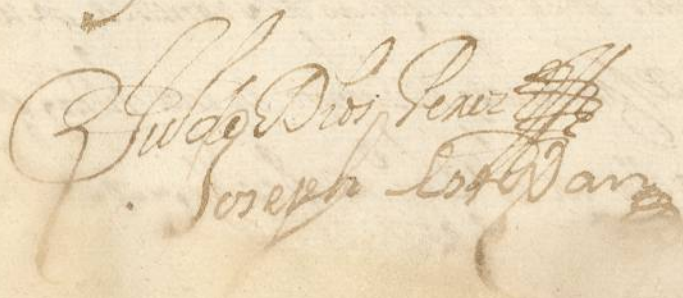 Ju de Dios Perez
Joseph Esteban